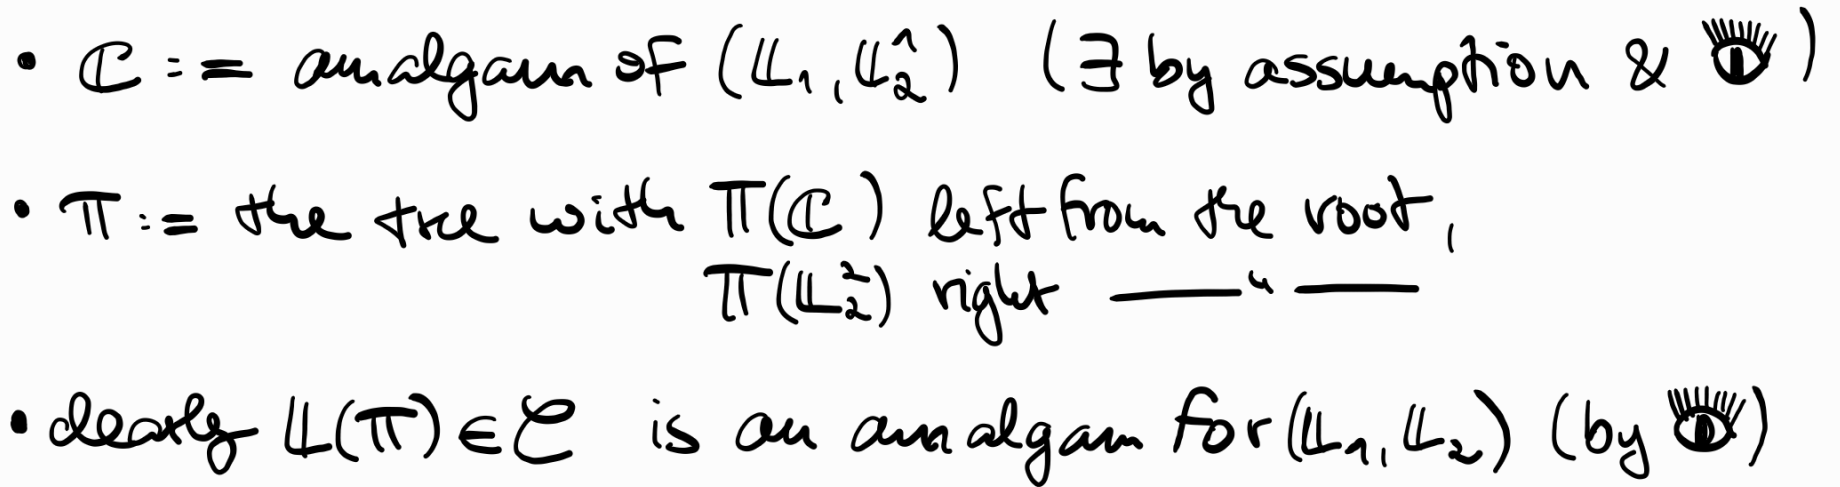 • ℂ := amalgam of (𝕃₁, 𝕃₂¹) (∃ by assumption & 👁)
• 𝕋 := the tree with 𝕋(ℂ) left from the root,
𝕋(𝕃₂²) right —— " ——
• clearly 𝕃(𝕋) ∈ 𝒞 is an amalgam for (𝕃₁, 𝕃₂) (by 👁)